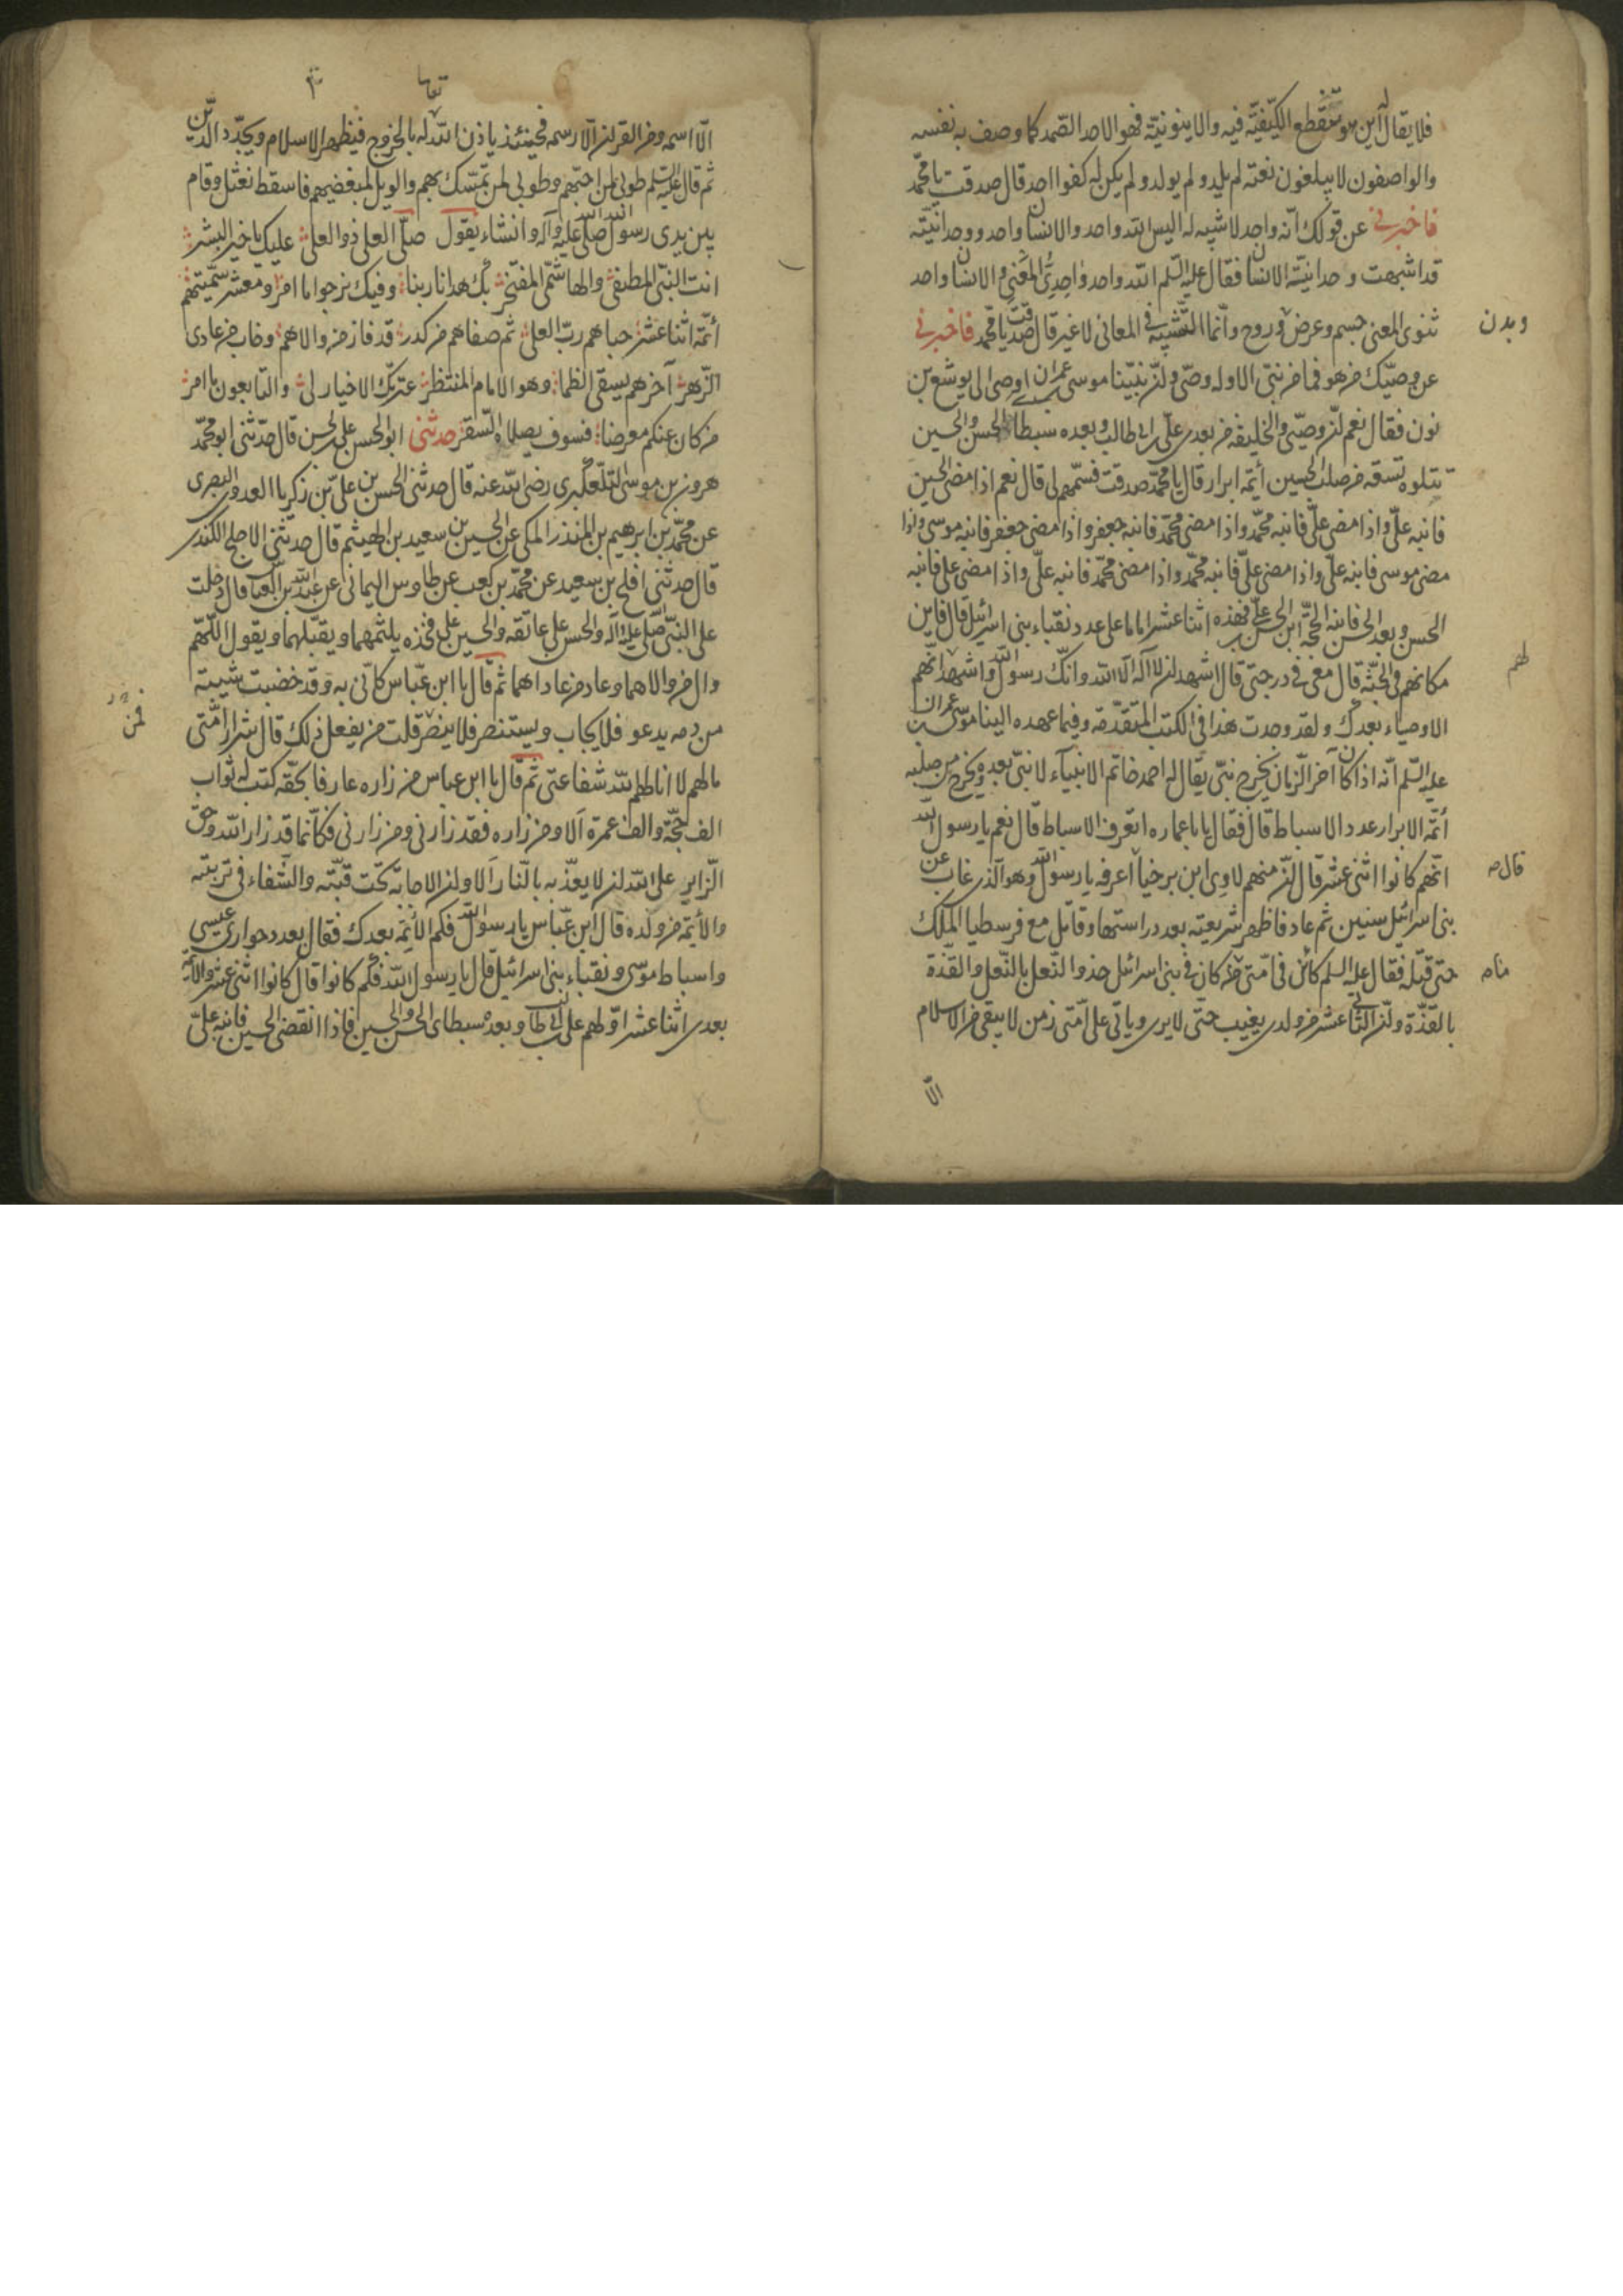 فلا يقال له اين هو منقطع الكيفيّة فيه والاينونيّة فهو الاحد الصّمد كما وصف به نفسه
والواصفون لا يبلغون نعته لم يلد ولم يولد ولم يكن له كفوا احد قال صدقت يا محمّد
فاخبرني عن قولك انّه واحد لا شبيه له اليس الله واحد والانسان واحد ووحدانيّته
قد اشبهت وحدانيّة الانسان فقال عليه السّلم الله واحد واحديّ المعنى والانسان واحد
ثنوى المعنى جسم وعرض وروح وانّما التّشبيه في المعاني لا غير قال صدقت يا محمّد فاخبرني
وبدن
عن وصيّك من هو فما من نبيّ الا وله وصيّ وانّ نبيّنا موسى بن عمران اوصى الى يوشع بن
نون فقال نعم انّ وصيّي والخليفة من بعدي عليّ بن ابي طالب وبعده سبطاي الحسن والحسين
تتلوه تسعة من صلب الحسين أئمّة ابرار قال يا محمّد صدقت فسمّهم لي قال نعم اذا مضى الحسين
فابنه عليّ واذا مضى عليّ فابنه محمّد واذا مضى محمّد فابنه جعفر واذا مضى جعفر فابنه موسى واذا
مضى موسى فابنه عليّ واذا مضى عليّ فابنه محمّد واذا مضى محمّد فابنه عليّ واذا مضى علي فابنه
الحسن وبعد الحسن فابنه الحجّة ابن الحسن بن عليّ فهذه اثنا عشر اماما على عدد نقباء بني اسرائيل قال فاين
مكانهم في الجنّة قال معي في درجتي قال اشهد ان لا اله الا الله وانّك رسول الله واشهد انّهم
لهم
الاوصياء بعدك ولقد وجدت هذا في الكتب المتقدّمة وفيما عهده الينا موسى بن عمران
عليه السّلم انّه اذا كان آخر الزّمان يخرج نبيّ يقال له احمد خاتم الانبياء لا نبيّ بعده ويخرج من صلبه
أئمّة الابرار عدد الاسباط قال فقال يا با عماره اتعرف الاسباط قال نعم يا رسول الله
انّهم كانوا اثنى عشر قال انّ منهم لاوى ابن برخيا اعرفه يا رسول الله وهو الّذي غاب عن
قال
بني اسرائيل سنين ثم عاد فاظهر شريعته بعد دراستها وقاتل مع فرسطيا الملك
حتى قتله فقال عليه السلم كائن في امّتي ما كان في بني اسرائيل حذو النّعل بالنّعل والقذّة
بالقذّة وانّ الثاني عشر من ولدي يغيب حتّى لا يرى وياتي على امّتي زمن لا يبقى من الاسلام
الّا
تعالى
الّا اسمه ومن القران الّا رسمه فحينئذ ياذن الله له بالخروج فيظهر الاسلام ويجدّد الدّين
ثم قال عليه السّلم طوبى لمن احبّهم وطوبى لمن تمسّك بهم والويل لمبغضيهم فاسقط نعثل وقام
بين يدي رسول الله صلى الله عليه وآله وانشاء يقول صلّى العلي ذو العلى عليك يا خير البشر
انت النّبيّ المصطفى والهاشمي المفتخر بك هدانا ربنا وفيك نرجوا ما امر ومعشر سمّيتهم
أئمّة اثنا عشر حباهم ربّ العلى ثم صفاهم من كدر قد فاز من والاهم وخاب من عادى
الزّهر آخرهم يسقى الظما وهو الامام المنتظر عترتك الاخيار لي والتابعون ما امر
من كان عنكم معرضا فسوف يصلاه السّقر حدثني ابو الحسن علي بن الحسن قال حدّثني ابو محمّد
هرون بن موسى التّلعكبري رضي الله عنه قال حدثني الحسن بن عليّ بن زكريا العدوي البصري
عن محمّد بن ابرهيم بن المنذر المكي عن الحسين بن سعيد بن الهيثم قال حدثني الاجلح الكندي
قال حدثني افلح بن سعيد عن محمّد بن كعب عن طاوس اليماني عن عبد الله بن العباس قال دخلت
على النبيّ صلى الله عليه وآله والحسن على عاتقه والحسين على فخذه يلثمهما ويقبّلهما ويقول اللّهم
وال من والاهما وعاد من عاداهما ثم قال يا ابن عبّاس كانّي به وقد خضبت شيبته
من دمه يدعو فلا يجاب ويستنصر فلا ينصر قلت من يفعل ذلك قال شرار امّتي
فمن
ما لهم لا انالهم الله شفاعتي ثم قال يا ابن عباس من زاره عارفا بحقّه كتب له ثواب
الف حجّة والف عمرة ألا ومن زاره فقد زارني ومن زارني فكأنّما قد زار الله وحقّ
الزّاير على الله ان لا يعذّبه بالنّار ألا وان الاجابة تحت قبّته والشّفاء في تربته
والأئمّة من ولده قال ابن عبّاس يا رسول الله فكم الأئمّة بعدك فقال بعدد حواري عيسى
واسباط موسى ونقباء بني اسرائيل قال يا رسول الله فكم كانوا قال كانوا اثني عشر والأئمّة
بعدي اثنا عشر اوّلهم علي بن ابي طالب وبعده سبطاي الحسن والحسين فاذا انقضى الحسين فابنه عليّ